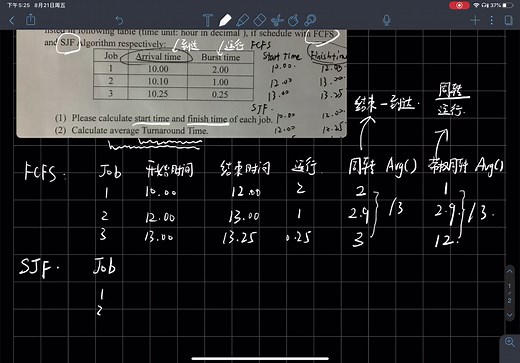 下午5:25 8月21日周五
37%
and SJF Algorithm respectively: 到达 运行 FCFS
listed in following table (time unit: hour in decimal ), if schedule with FCFS
Job Arrival time Burst time Start Time Finish time
1 10.00 2.00 10.00 12.00
2 10.10 1.00 12.00 13.00
3 10.25 0.25 13.00 13.25
SJF.
(1) Please calculate start time and finish time of each job. 10.00 12.00
(2) Calculate average Turnaround Time. 12.00
结束-到达 周转
运行
FCFS: Job 开始时间 结束时间 运行 周转 Avg() 带权周转 Avg()
1 10.00 12.00 2 2 1
2 12.00 13.00 1 2.9 /3 2.9 /3.
3 13.00 13.25 0.25 3 12.
SJF. Job
1
2
1/2